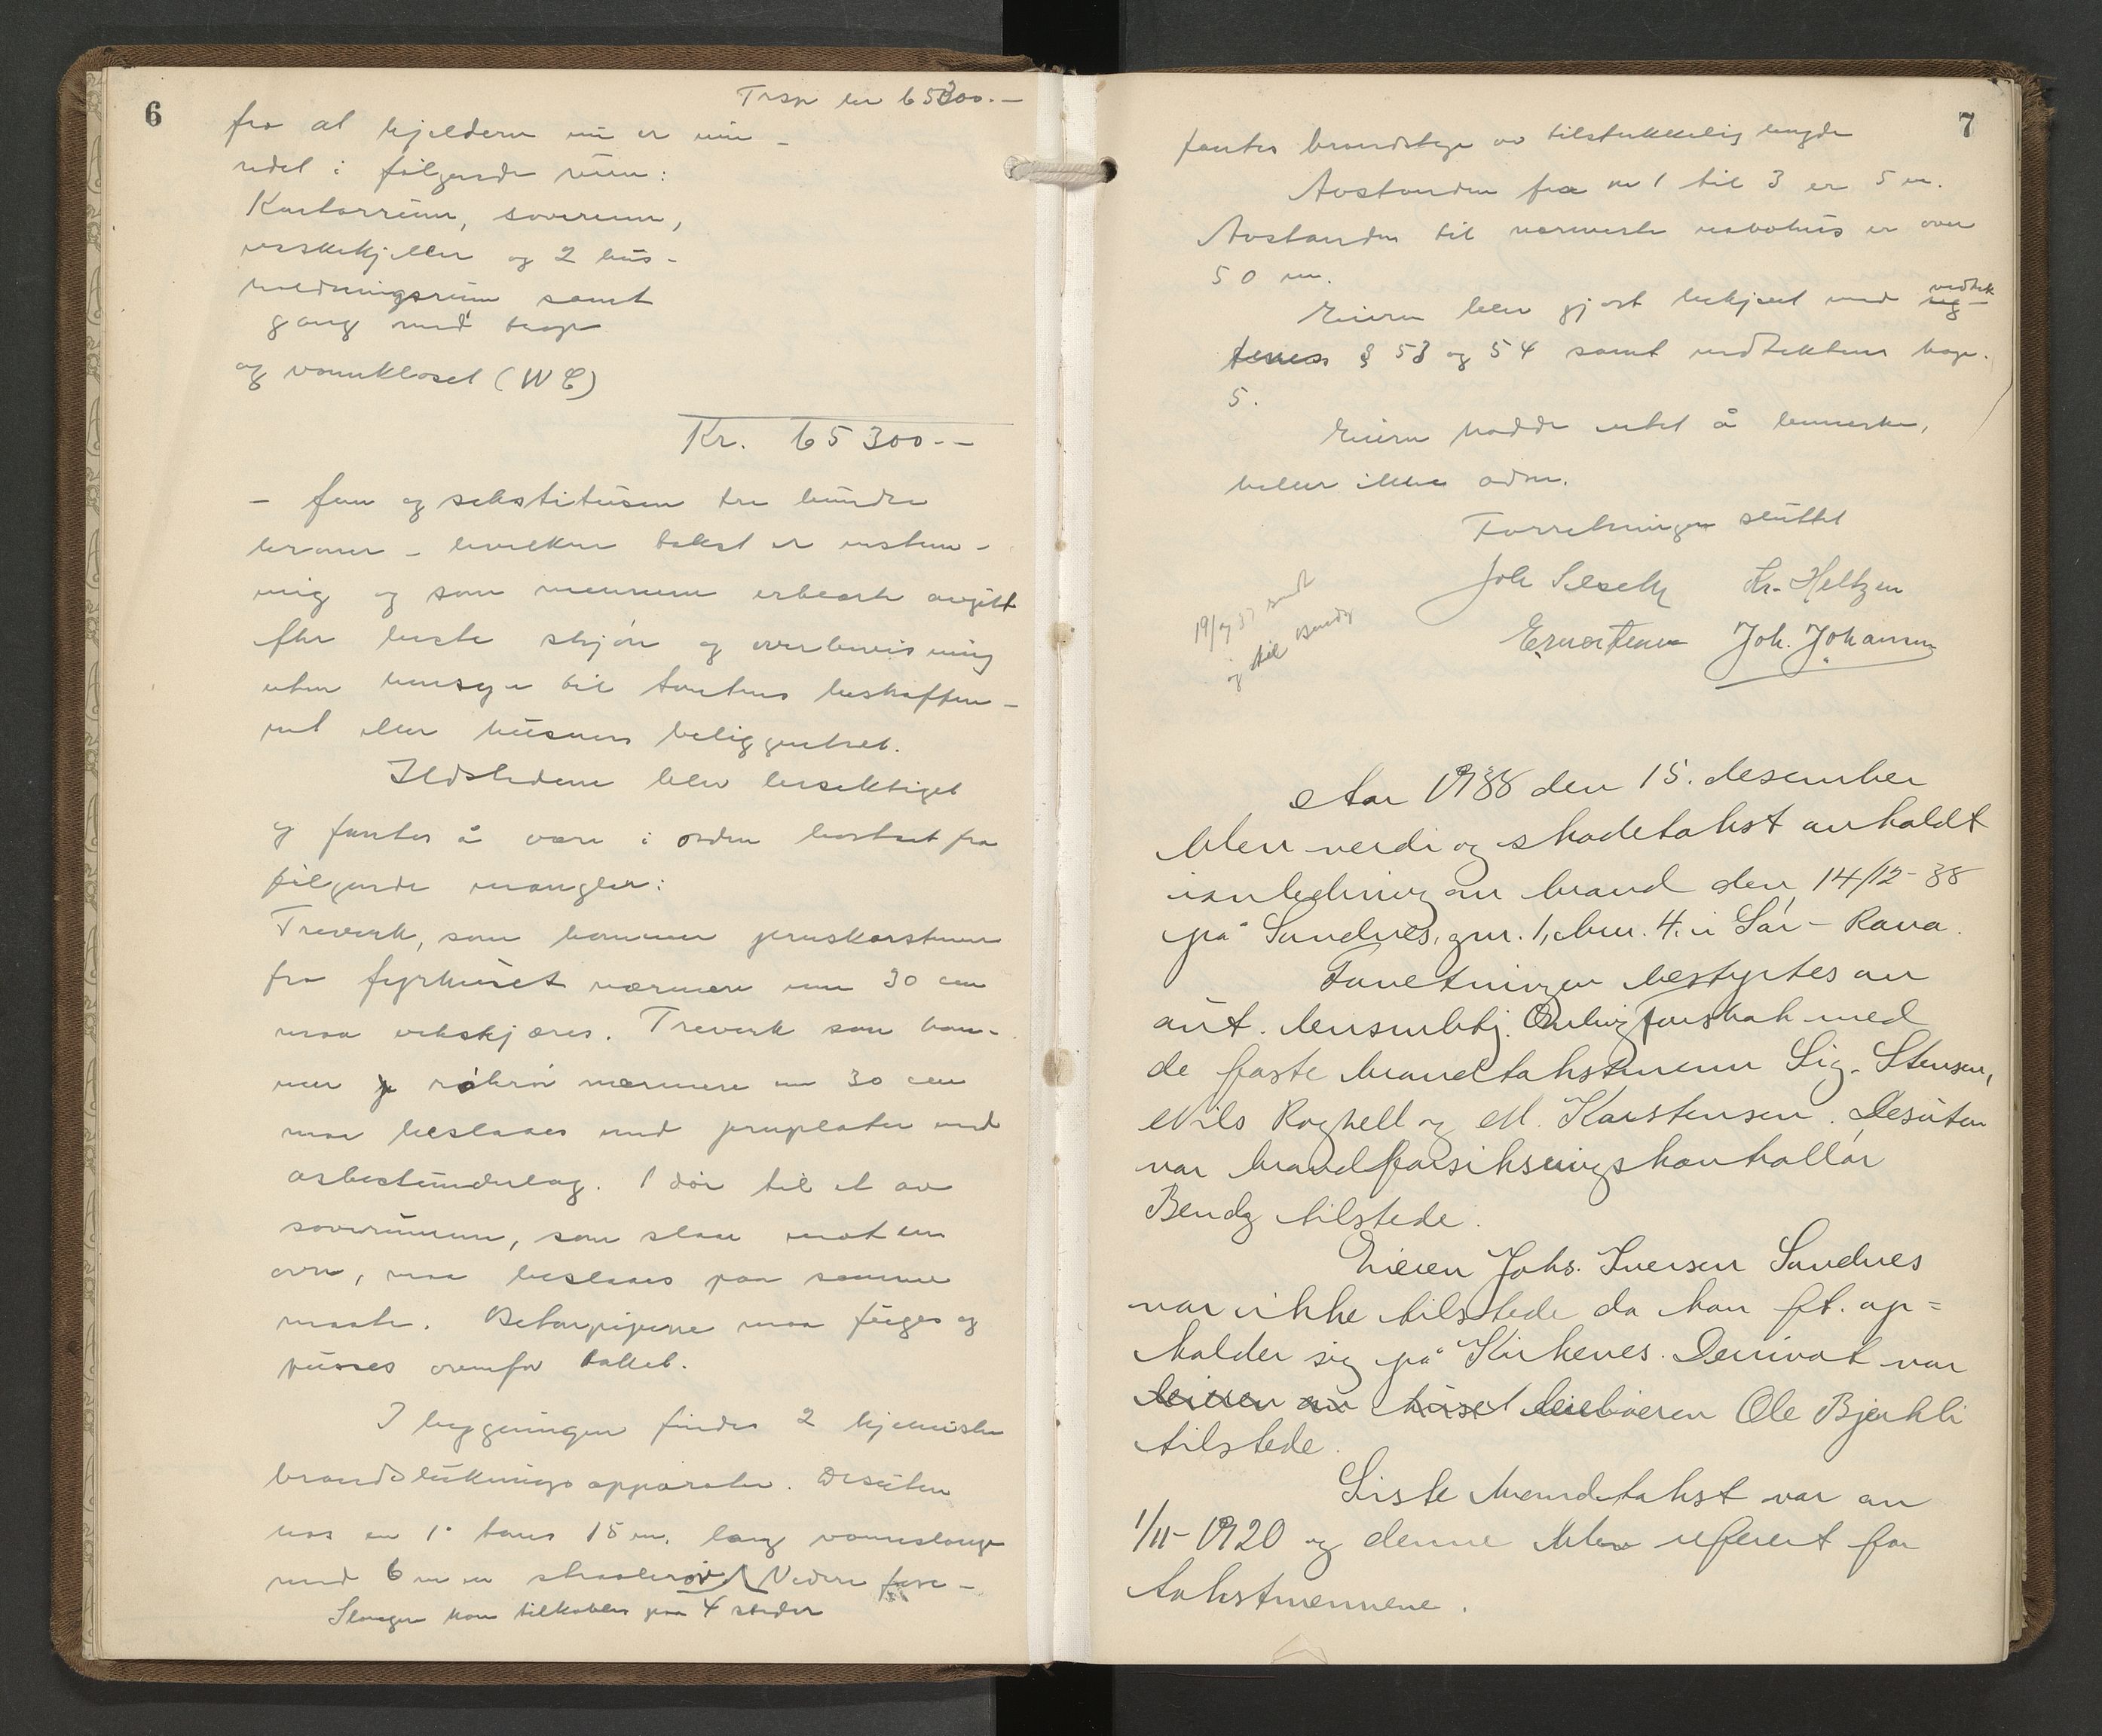 6
Trsp kr 65300.–
fra at kjelderen nu er inn–
redet i følgende rum:
Kontorrum, soverum,
vaskekjeller og 2 hus–
holdningsrum samt
gang med trapp
og vannkloset (WC)
Kr. 65300.–
– fem og sekstitusen tre hundre
kroner – hvilken takst er enstem–
mig og som mennene erklærte avgitt
efter beste skjøn og overbevisning
uten hensyn til tomtens beskaffen–
het eller husenes beliggenhet.
Ildstedene blev besiktiget
og fantes å være i orden bortset fra
følgende mangler:
Treverk, som kommer jernskorstenen
fra fyrhuset nærmere enn 30 cm
maa vekskjæres. Treverk som kom–
mer røkrør nærmere enn 30 cm
maa beslaaes med jernplater med
asbestunderlag. 1 dør til et av
soverummene, som slaar mot en
ovn, maa beslaaes paa samme
maate. Betongpipene maa fuges og
pusses ovenfor taket.
I bygningen findes 2 kjemiske
brandslukningsapparater. Desuten
has en 1" toms 15 m. lang vannslange
med 6 m m straalerør. Videre
Slangen kan tilkobles paa 4 steder
7
fantes brandstige av tilstrekkelig lengde
Avstanden fra nr 1 til 3 er 5 m.
Avstanden til nærmeste nabohus er over
50 m.
Eieren blev gjort bekjent med vedtek
tenes § 53 og 54 samt vedtektenes kap.
5.
Eieren hadde intet å bemerke,
heller ikke andre.
Forretningen sluttet
Kr. Heltzen
Joh. Johansen
19/7 37 sendt
til
Aar 1938 den 15. desember
blev verdi og skadetakst avholdt
i anledning av brand den 14/12–38
på Sandnes, gnr. 1, bnr. 4. i Sør–Rana.
Forretningen bestyrtes av
aut. lensmbtj. med
de faste brandtakstmenn Sig. Stensen,
Nils Roghell og M. Karstensen. Desuten
var brandforsikringskontrollør
Bendz tilstede.
Eieren Johs. Iversen Sandnes
var ikke tilstede da han f.t. op=
holder sig på Kirkenes. Derimot var
leieren av huset leieboeren Ole Bjerkli
tilstede.
Siste brandtakst var av
1/11–1920 og denne blev referert for
takstmennene.